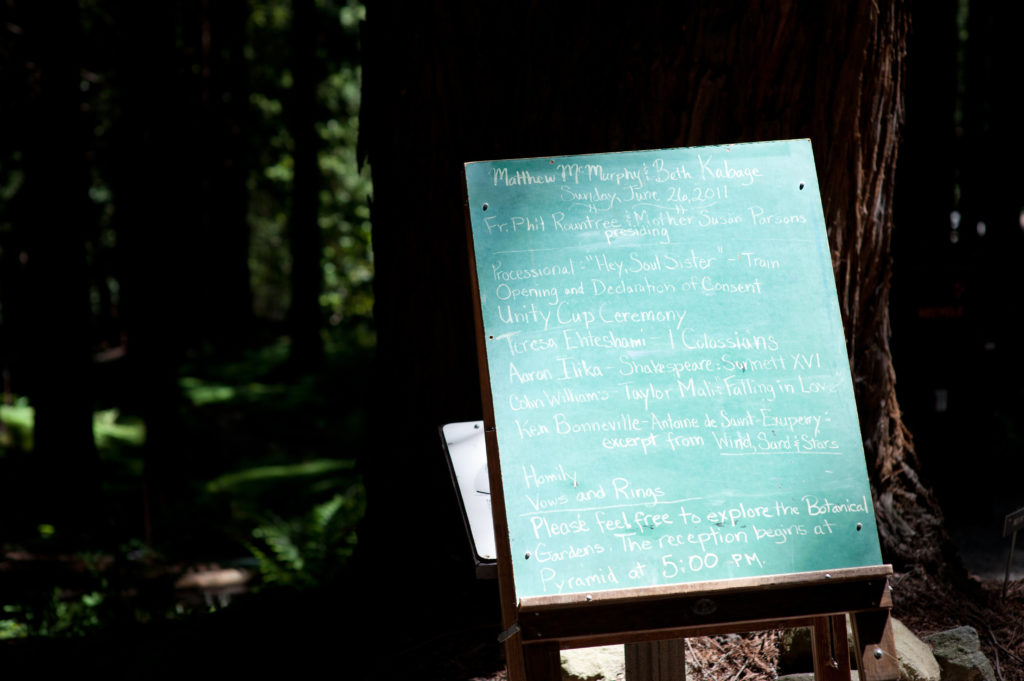 Matthew McMurphy & Beth Kabage
Sunday, June 26, 2011
Fr. Phil Rountree & Mother Susan Parsons
presiding
Processional: "Hey, Soul Sister" - Train
Opening and Declaration of Consent
Unity Cup Ceremony
Teresa Ehlesham - 1 Colossians
Aaron Ilika - Shakespeare: Sonnett XVI
Colin Williams - Taylor Mali: Falling in Love
Ken Bonneville - Antoine de Saint-Exupery:
excerpt from Wind, Sand & Stars
Homily
Vows and Rings
Please feel free to explore the Botanical
Gardens. The reception begins at
Pyramid at 5:00 PM.